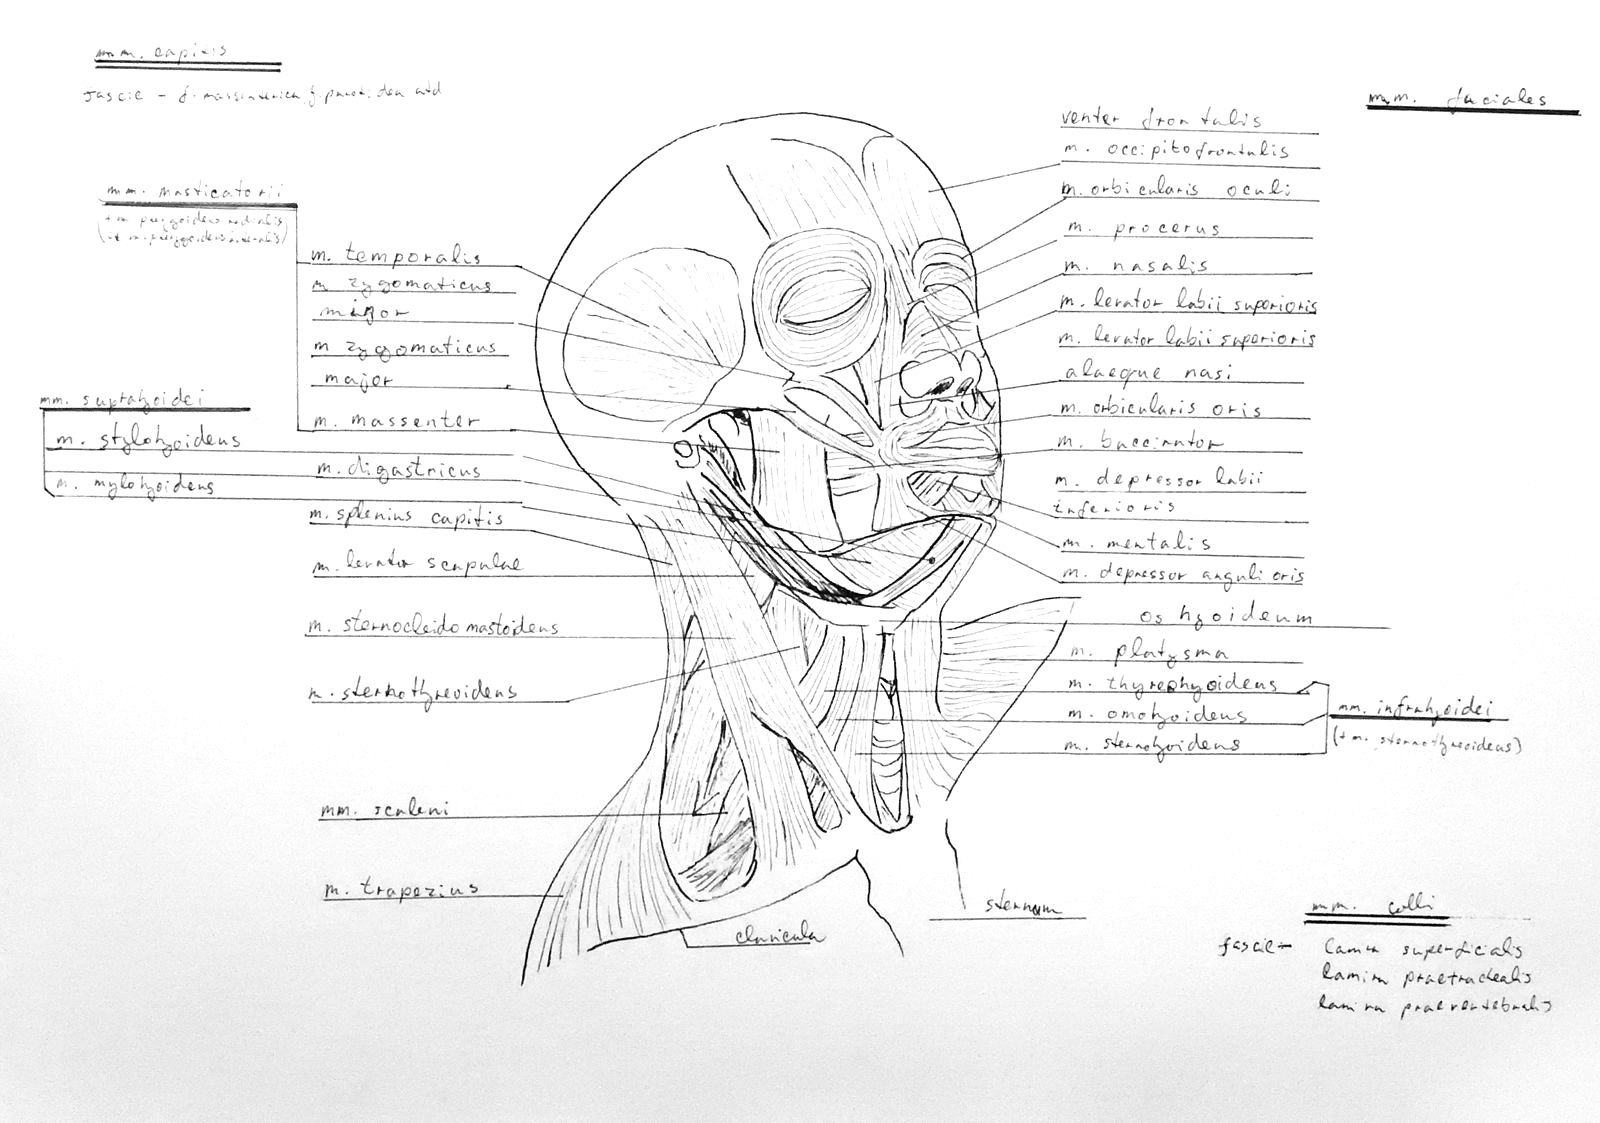 mm. capitis
fascie - f. massenterica, f. parotidea atd
mm. masticatorii
(+ m. pterygoideus medialis
(et m. pterygoideus lateralis)
m. temporalis
m zygomaticus
major
m zygomaticus
major
m. massenter
mm. suprahyoidei
m. stylohyoideus
m. digastricus
m. mylohyoideus
m. splenius capitis
m. levator scapulae
m. sternocleidomastoideus
m. sternothyreoideus
mm. scaleni
m. trapezius
clavicula
sternum
mm. faciales
venter frontalis
m. occipitofrontalis
m. orbicularis oculi
m. procerus
m. nasalis
m. levator labii superioris
m. levator labii superioris
alaeque nasi
m. orbicularis oris
m. buccinator
m. depressor labii
inferioris
m. mentalis
m. depressor anguli oris
os hyoideum
m. platysma
m. thyreohyoideus
m. omohyoideus
m. sternohyoideus
mm. infrahyoidei
(+ m. sternothyreoideus)
mm. colli
fascie - lamina superficialis
lamina praetrachealis
lamina praevertebralis